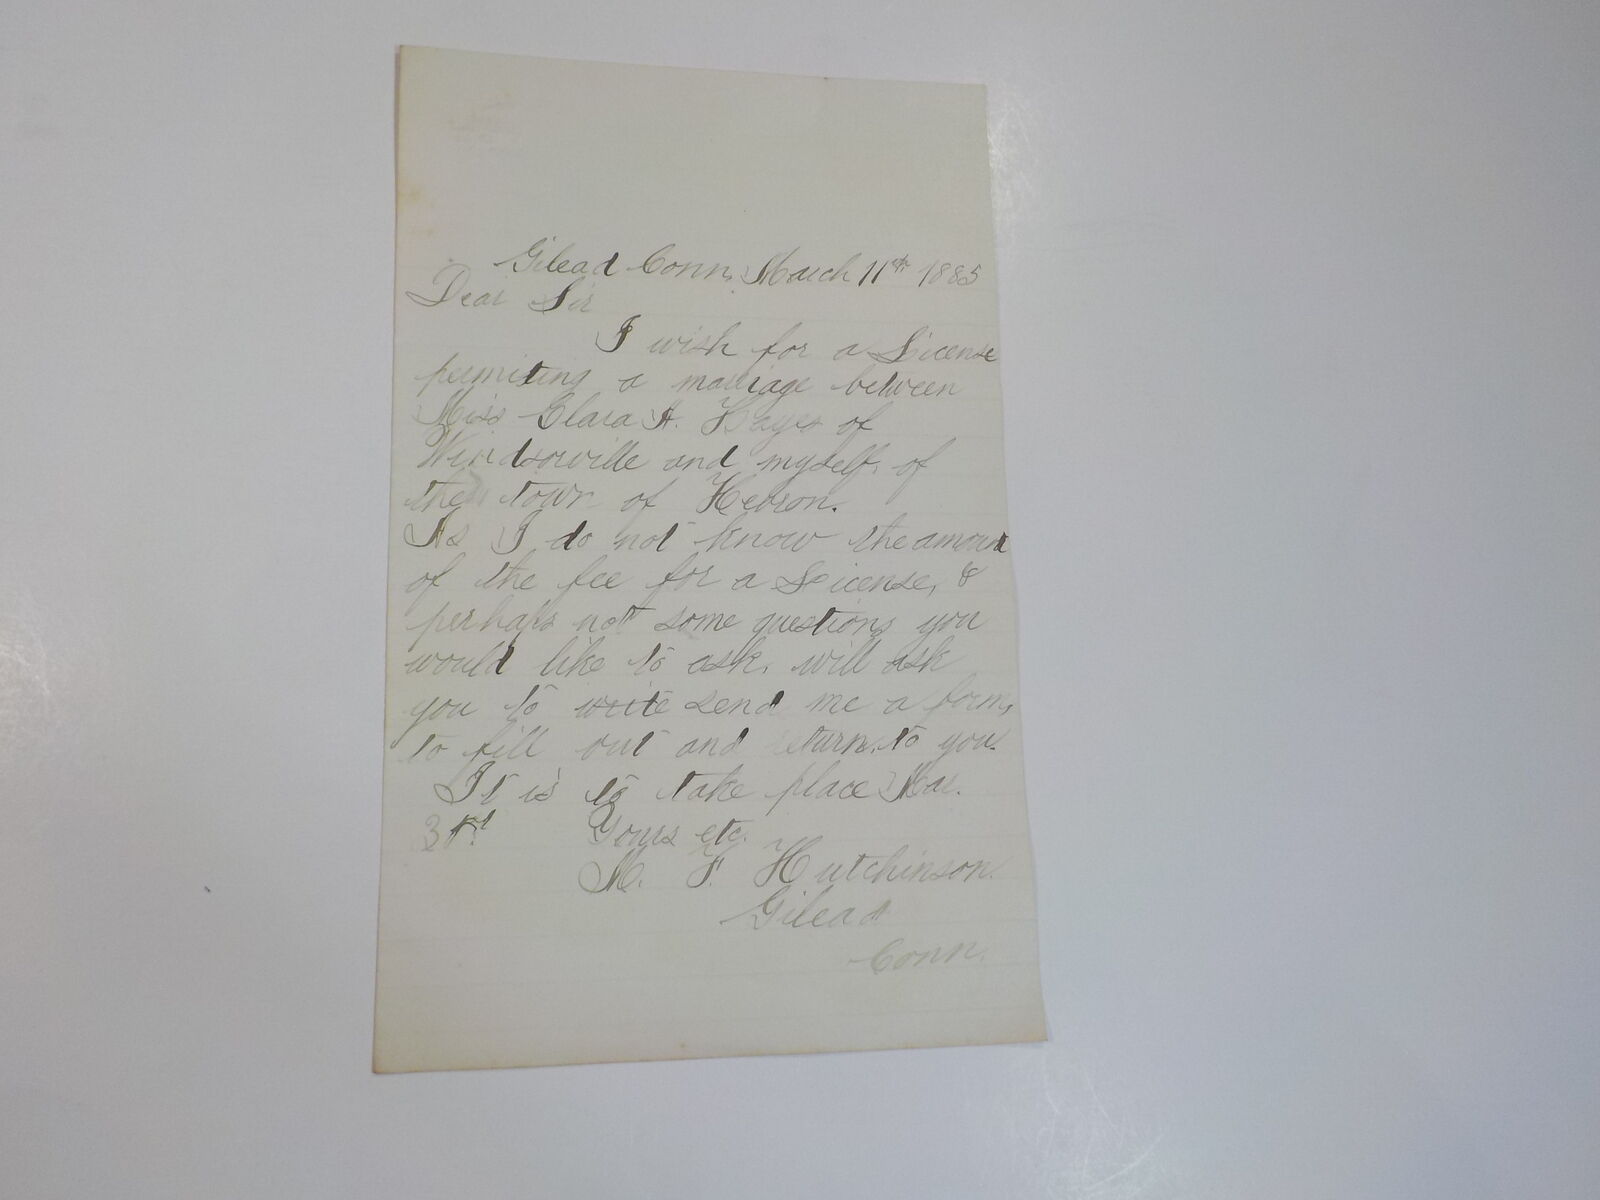 Gilead Conn. March 11th 1885
Dear Sir
I wish for a License
permiting a marriage between
Miss Clara A. Hayes of
Windsorville and myself, of
the town of Hebron.
As I do not know the amount
of the fee for a License, &
perhaps not some questions you
would like to ask, will ask
you to write send me a form,
to fill out and return, to you.
It is to take place Mar.
Yours etc.
M. F. Hutchinson.
Gilead
Conn.